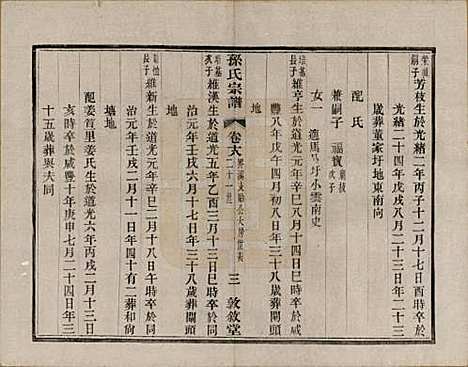 芳枝生於光緒二年丙子十二月十七日酉時卒於
光緒二十四年戊戌八月二十三日年二十三
歲葬董家圩地東南向
配氏
兼嗣子 福寶 次子
女一 適馬圩小雲南史
長子 維亨生於道光元年辛巳八月十四日寅時卒於咸
豐八年戊午四月初八日年三十八歲葬閘頭
地
孫氏宗譜 卷六 二十一世 三 敦敘堂
次子 維漢生於道光五年乙酉三月十三日寅時卒於同
治元年壬戌六月十七日年三十八歲葬閘頭
地
長子 維新生於道光元年辛巳二月十八日午時卒於同
治元年壬戌二月十一日年四十有二葬和尚
墳地
配姜首里姜氏生於道光六年丙戌二月十三日
亥時卒於咸豐十年庚申七月二十四日年三
十五歲葬與夫同